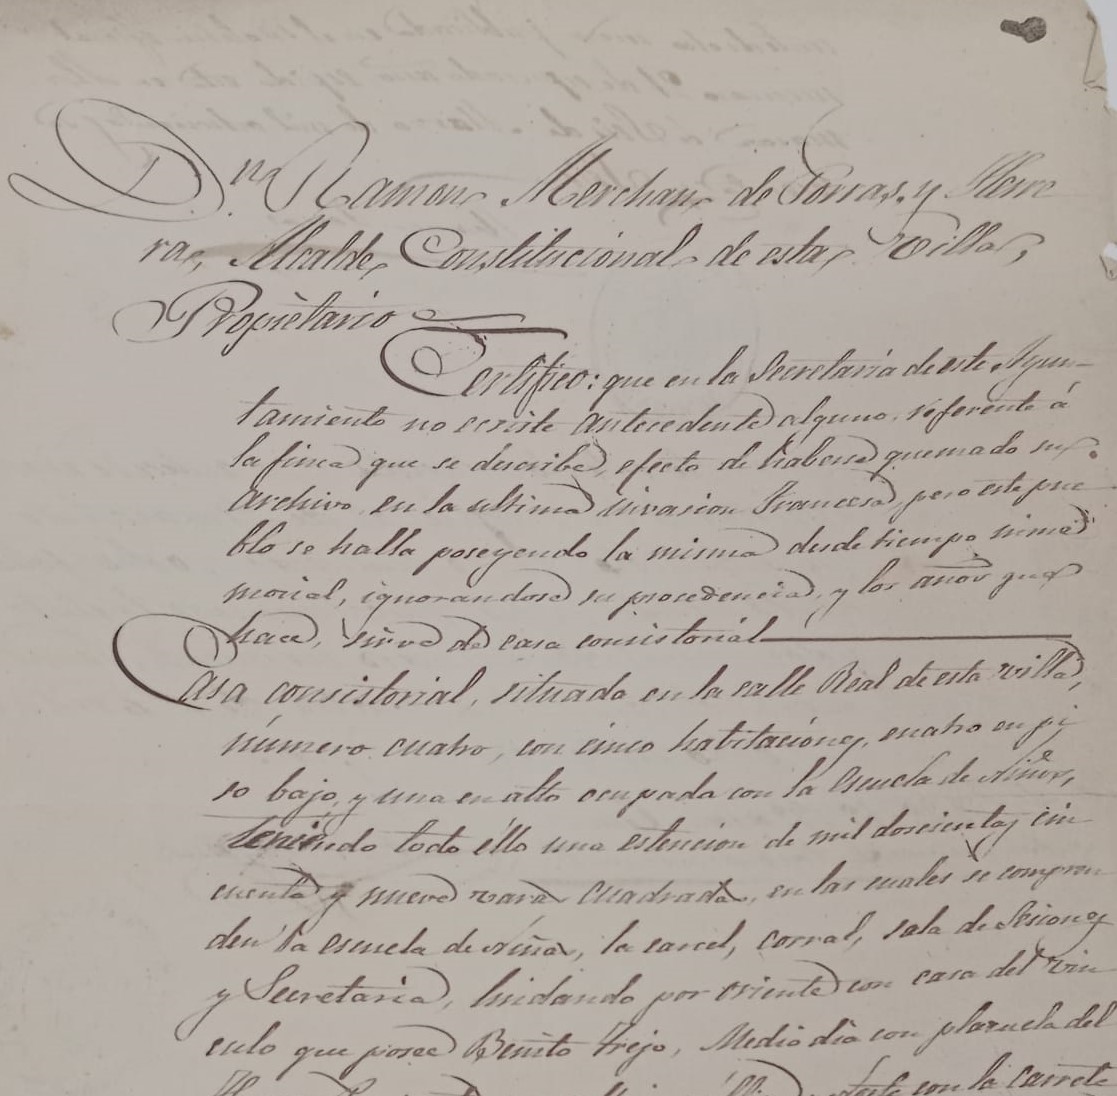 Dn. Ramon Merchan de Porras, y Herre
ra, Alcalde Constituciónal de esta Villa,
Propiètario
Certifico: que en la Secretaría de este Ayun-
tamiento no ecsiste antecedente alguno referente á
la finca que se describe, efecto de haberse quemado su
archivo en la ultima invasion Francesa, pero este pue
blo se halla poseyendo la misma desde tiempo inme
morial, ignorandose su procedencia, y los años que
hace, sirve de casa consistorial
Casa consistorial, situada en la calle Real de esta villa,
número cuatro, con cinco habitaciónes, cuatro en pi
so bajo, y una en alto ocupada con la Escuela de Niños,
teniendo todo éllo una estencion de mil doscientas cin
cuenta y nueve varas cuadradas, en las cuales se compren
den la escuela de Niñas, la carcel, corral, sala de Sesiones
y Secretaria, lindando por oriente con casa del vin
culo que posee Benito Trejo, Medio dia con plazuela del
con la carrete